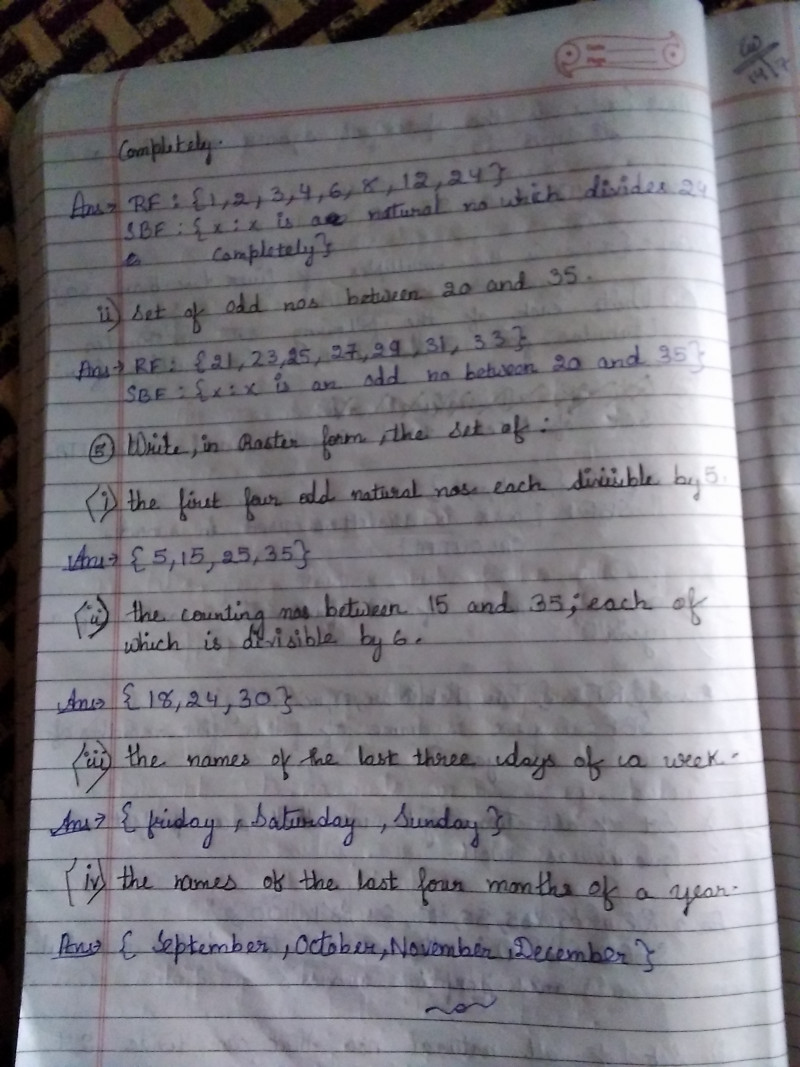 Completely.
Ans→ RF : {1, 2, 3, 4, 6, 8, 12, 24}
SBF : {x : x is a natural no which divides 24
completely}
ii) Set of odd nos between 20 and 35.
Ans→ RF : {21, 23, 25, 27, 29, 31, 33}
SBF : {x : x is an odd no between 20 and 35}
⑤ Write, in Roster form, the set of :
(i) the first four odd natural nos each divisible by 5.
Ans→ {5, 15, 25, 35}
(ii) the counting nos between 15 and 35; each of
which is divisible by 6.
Ans→ {18, 24, 30}
(iii) the names of the last three days of a week.
Ans→ {friday, Saturday, Sunday}
(iv) the names of the last four months of a year.
Ans→ {September, October, November, December}